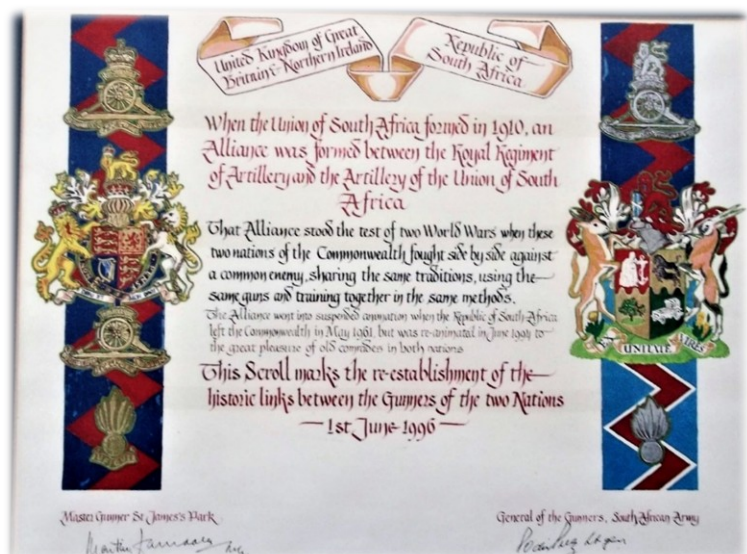 United Kingdom of Great
Britain & Northern Ireland
Republic of
South Africa
When the Union of South Africa formed in 1910, an
Alliance was formed between the Royal Regiment
of Artillery and the Artillery of the Union of South
Africa
That Alliance stood the test of two World Wars when these
two nations of the Commonwealth fought side by side against
a common enemy, sharing the same traditions, using the
same guns and training together in the same methods.
The Alliance went into suspended animation when the Republic of South Africa
left the Commonwealth in May 1961, but was re-animated in June 1994 to
the great pleasure of old comrades in both nations
This Scroll marks the re-establishment of the
historic links between the Gunners of the two Nations
1st June 1996
EX UNITATE VIRES
Master Gunner St James's Park
General of the Gunners, South African Army